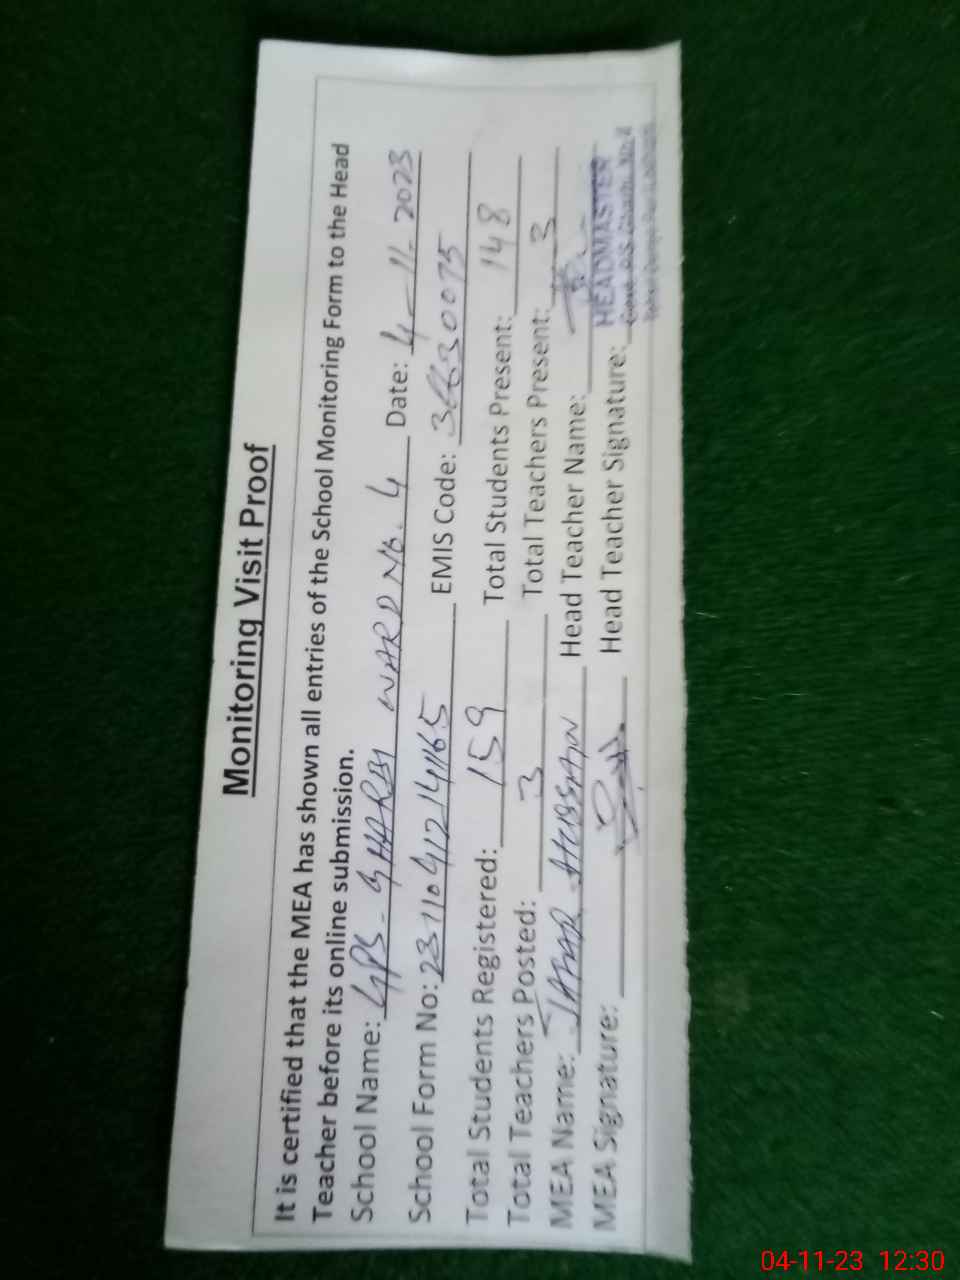 Monitoring Visit Proof
It is certified that the MEA has shown all entries of the School Monitoring Form to the Head
Teacher before its online submission.
School Name: GPS - GHARBI WARD No. 4 Date: 4-11-2023
School Form No: EMIS Code: 36630075
Total Students Registered: 159 Total Students Present: 148
Total Teachers Posted: 3 Total Teachers Present: 3
MEA Name: JAFAR HUSSAIN Head Teacher Name:
MEA Signature: Head Teacher Signature:
HEADMASTER
04-11-23 12:30